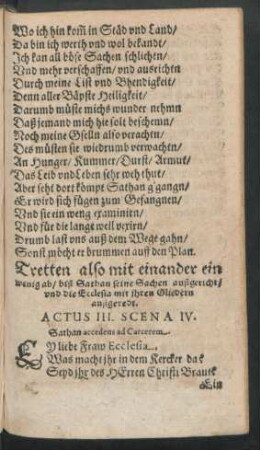 Wo ich hin kom̃ in Städ vnd Land/
Da bin ich werth vnd wol bekandt/
Ich kan all böse Sachen schlichten/
Vnd mehr verschaffen/ vnd ausrichtn
Durch meine List vnd Bhendigkeit/
Denn aller Bäpste Heiligkeit/
Darumb müste michs wunder nehmn
Daß jemand mich hie solt beschemn/
Noch meine Gselln also verachten/
Des müsten sie wiedrumb verwachten/
An Hunger/ Kummer/ Durst/ Armut/
Das Leid vnd Leben sehr weh thut/
Aber seht dort kömpt Sathan g'gangn/
Er wird sich fügen zum Gefangnen/
Vnd sie ein weng examinirn/
Vnd für die lange weil vexirn/
Drumb last vns auß dem Wege gahn/
Sonst möcht er brummen auff den Plan.
Tretten also mit einander ein
wenig ab/ biß Sathan seine Sachen außgericht/
vnd die Ecclesia mit ihren Gliedern
außgeredt.
ACTUS III. SCENA IV.
Sathan accedens ad Carcerem.
EY liebe Fraw Ecclesia,
Was macht jhr in dem Kercker da?
Seyd jhr des HErren Christi Braut?
Ein